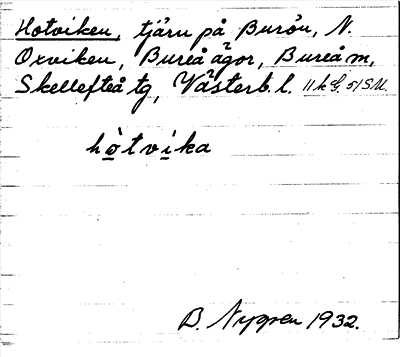 Hotviken, tjärn på Burön, N.
Oxviken, Bureå ägor, Bureå m,
Skellefteå tg, Västerb. l. 11 k
hò̱tvi̱ka
B. Nygren 1932.